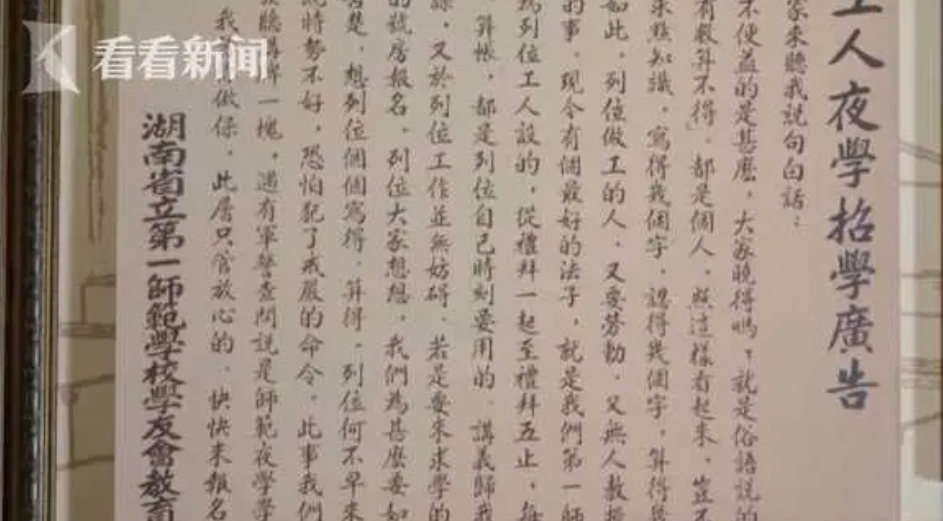 看看新闻
工人夜學招學廣告
家來聽我說句白話：
不便益的是甚麽，大家曉得嗎？就是俗語說的
有數算不得，都是個人，照這樣看起來，豈不
來點知識，寫得幾個字，認得幾個字，算得幾
如此，列位做工的人，又要勞動，又無人教授
的事。現今有個最好的法子，就是我們第一師
我列位工人設的，從禮拜一起至禮拜五止，每
算帳，都是列位自己時刻要用的，講義歸我
又於列位工作並無妨碍，若是要來求學的
的號房報名，列位大家想想，我們為甚麽要如
楚，想列位個個寫得，算得，列位何不早來
說時勢不好，恐怕犯了戒嚴的命令，此事我們
聽講牌一塊，遇有軍警查問說是師範夜學學
我 做保，此層只管放心的，快快來報名
湖南省立第一師範學校學友會教育